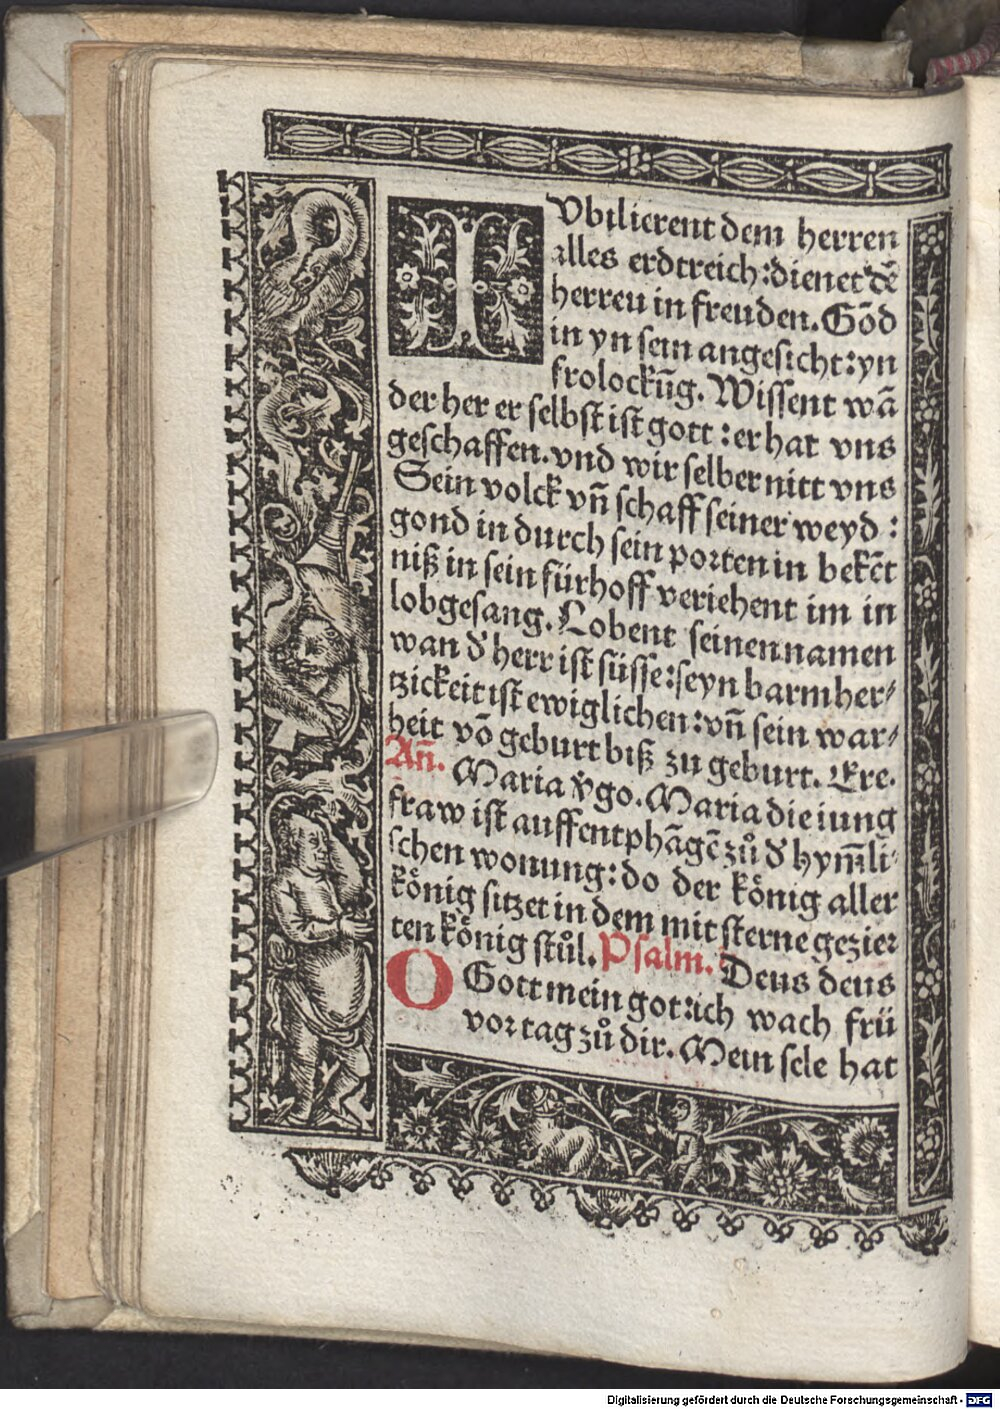 IVbilierent dem herren
alles erdtreich: dienet dē
herren in freuden. Gōd
in yn sein angesicht: yn
frolockūg. Wissent wā
der her er selbst ist gott: er hat vns
geschaffen. vnd wir selber nitt vns
Sein volck vn̄ schaff seiner weyd:
gond in durch sein porten in bekēt
niß in sein fürhoff veriehent im in
lobgesang. Lobent seinen namen
wan d̕ herr ist süsse: seyn barmher⸗
tzickeit ist ewiglichen: vn̄ sein war⸗
heit vō geburt biß zu geburt. Ere.
An̄. Maria v̕go. Maria die iung
fraw ist auffentphāgē zů d̕ hym̄li⸗
schen wonung: do der koͤnig aller
koͤnig sitzet in dem mit sterne gezier
ten koͤnig stůl. Psalm. Deus deus
O Gott mein got: ich wach frü
vor tag zů dir. Mein sele hat
Digitalisierung gefördert durch die Deutsche Forschungsgemeinschaft - DFG